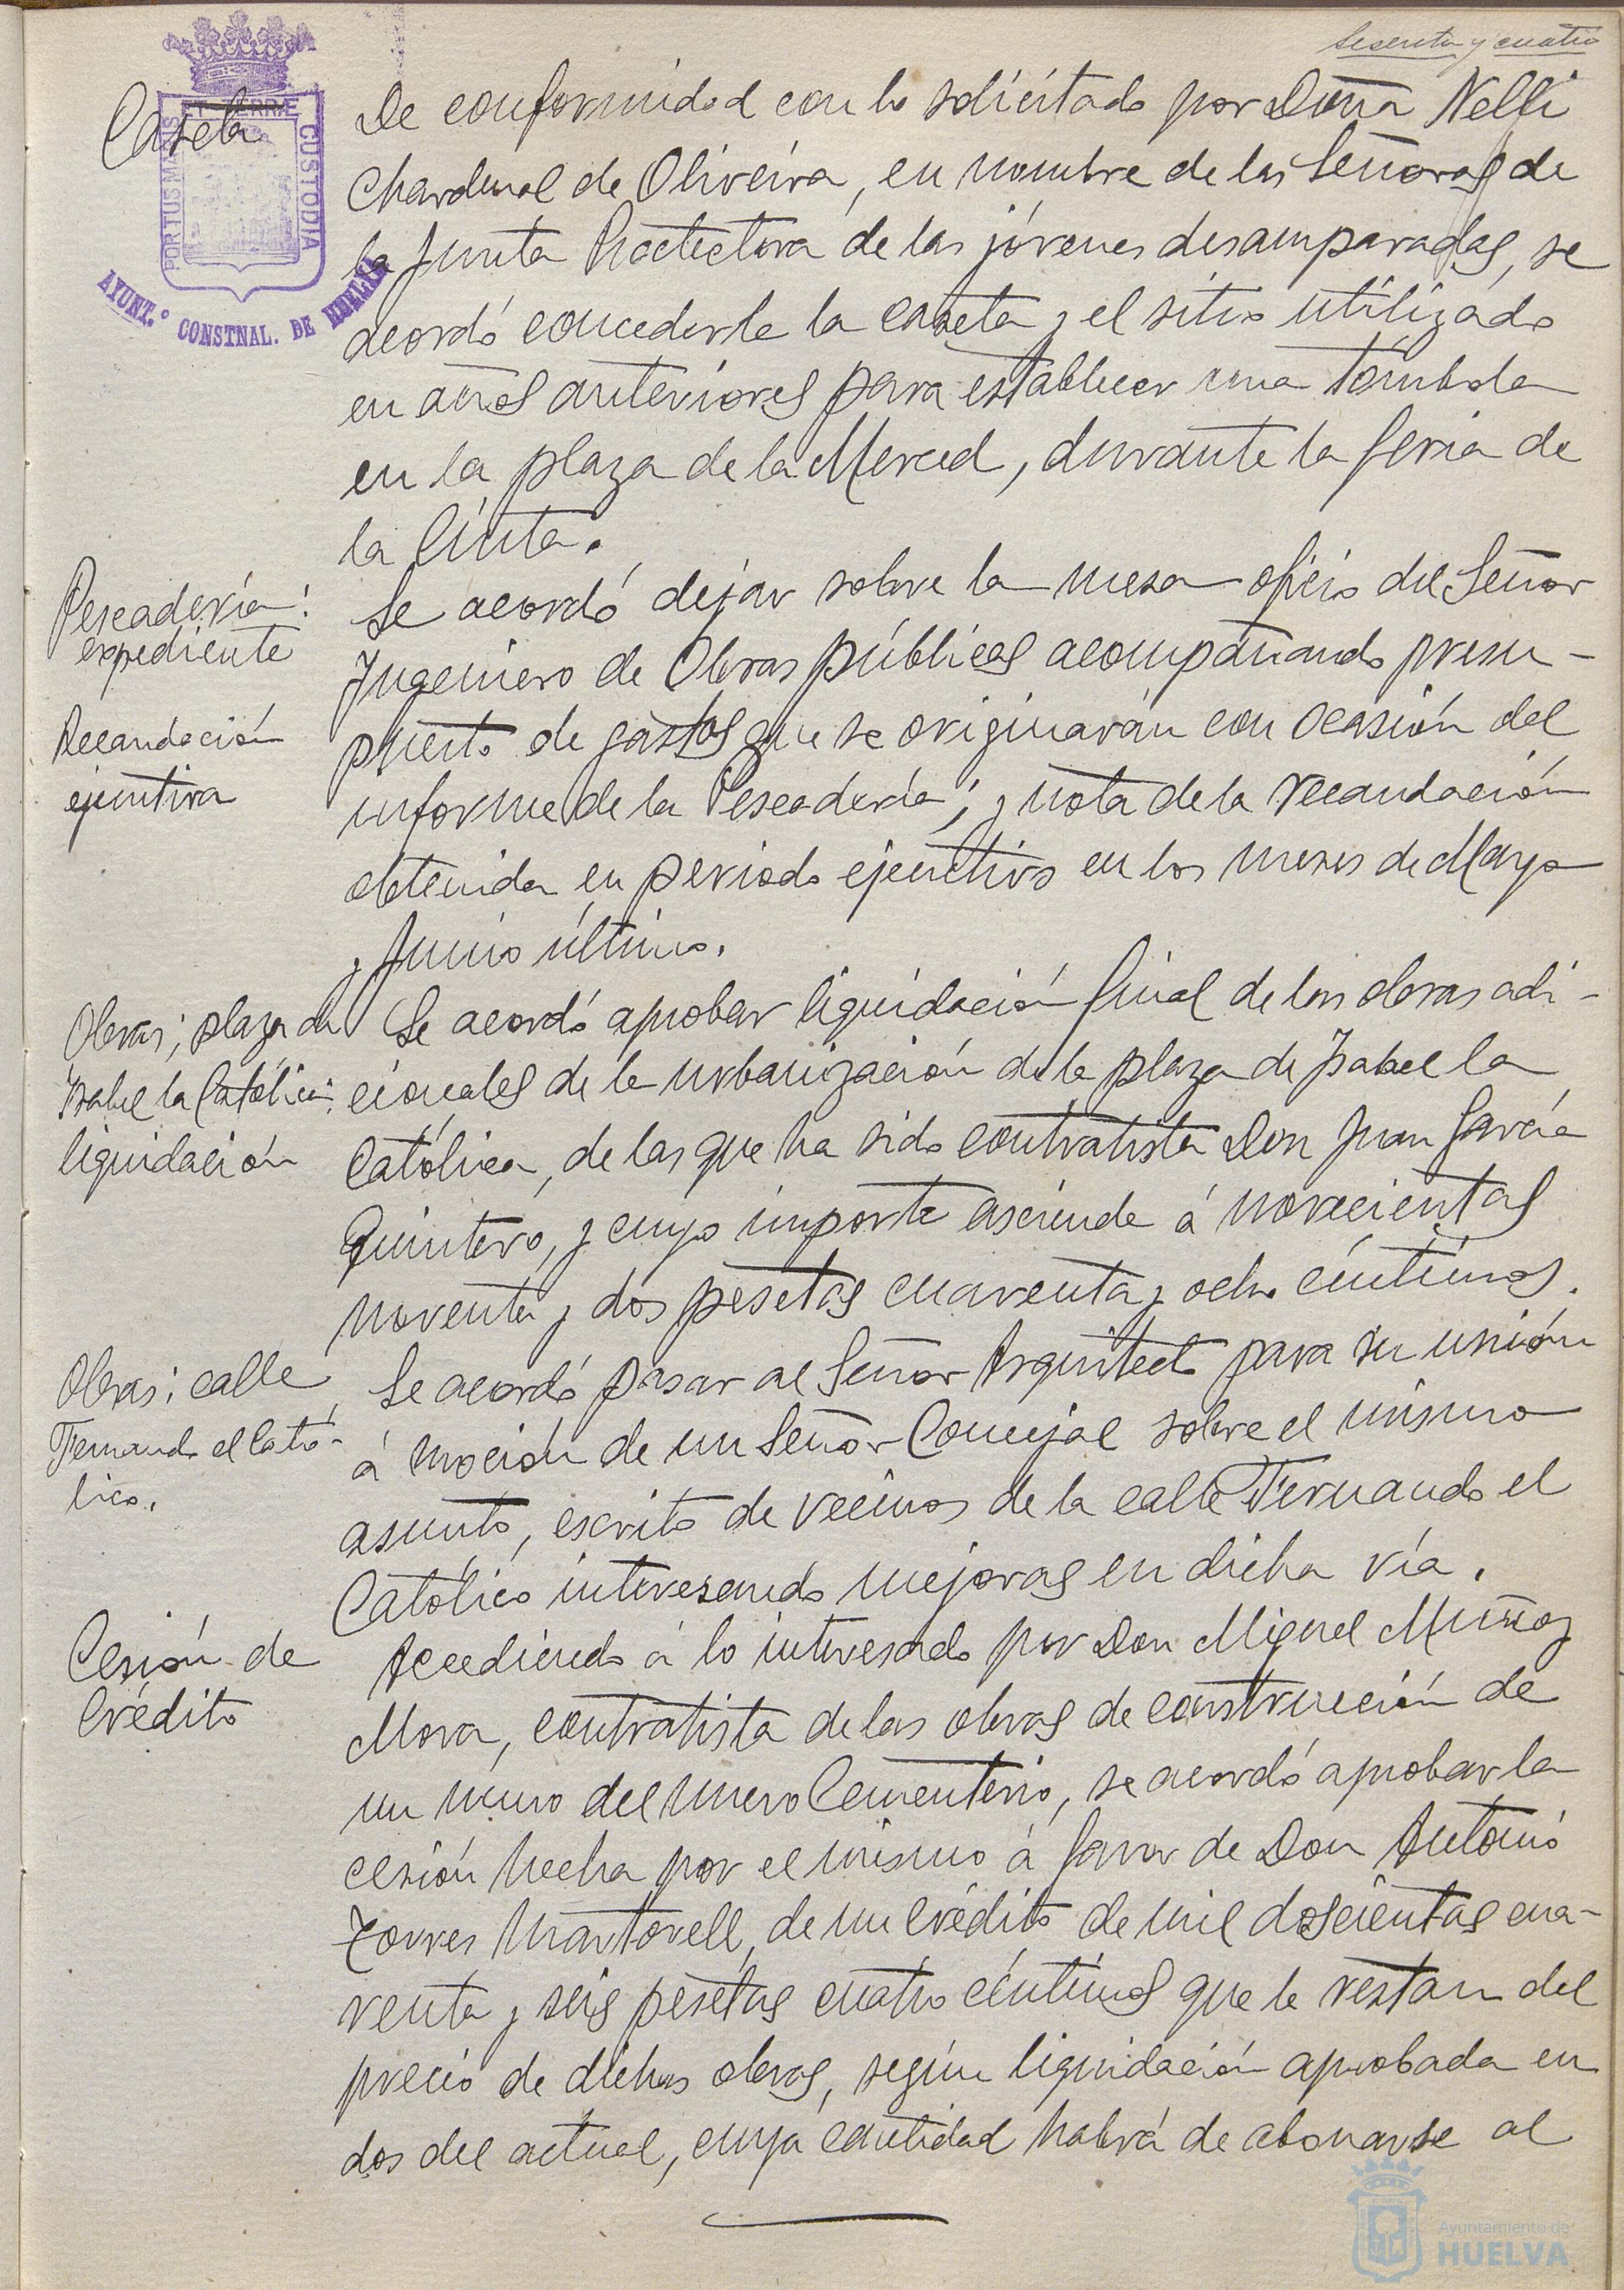 sesenta y cuatro
ET TERRÆ
PORTUS MARIS
CUSTODIA
AYUNT.º CONSTNAL. DE HUELVA
Caseta
De conformidad con lo solicitado por Doña Nelli
Chardenal de Oliveira, en nombre de las Señoras de
la Junta Protectora de las jóvenes desamparadas, se
acordó concederle la caseta y el sitio utilizado
en años anteriores para establecer una tómbola
en la plaza de la Merced, durante la feria de
la Cinta.
Pescadería:
expediente
Recaudación
ejecutiva
Se acordó dejar sobre la mesa oficio del Señor
Ingeniero de Obras públicas acompañando presu-
puesto de gastos que se originarán con ocasión del
informe de la Pescadería; y nota de la recaudación
obtenida en periodo ejecutivo en los meses de Mayo
y Junio último.
Obras; plaza de
Isabel la Católica:
liquidación
Se acordó aprobar liquidación final de las obras adi-
cionales de la urbanización de la plaza de Isabel la
Católica, de las que ha sido contratista Don Juan García
Quintero, y cuyo importe asciende á novecientas
noventa y dos pesetas cuarenta y ocho céntimos.
Obras: calle
Fernando el Cató-
lico.
Se acordó pasar al Señor Arquitecto para su unión
á moción de un Señor Concejal sobre el mismo
asunto, escrito de vecinos de la calle Fernando el
Católico interesando mejoras en dicha vía.
Cesión de
Crédito
Accediendo á lo interesado por Don Miguel Muñoz
Mora, contratista de las obras de construcción de
un muro del nuevo Cementerio, se acordó aprobar la
cesión hecha por el mismo á favor de Don Antonio
Torres Martorell, de un crédito de mil doscientas cua-
renta y seis pesetas cuatro céntimos que le restan del
precio de dichas obras, según liquidación aprobada en
dos del actual, cuya cantidad habrá de abonarse al
Ayuntamiento de
HUELVA